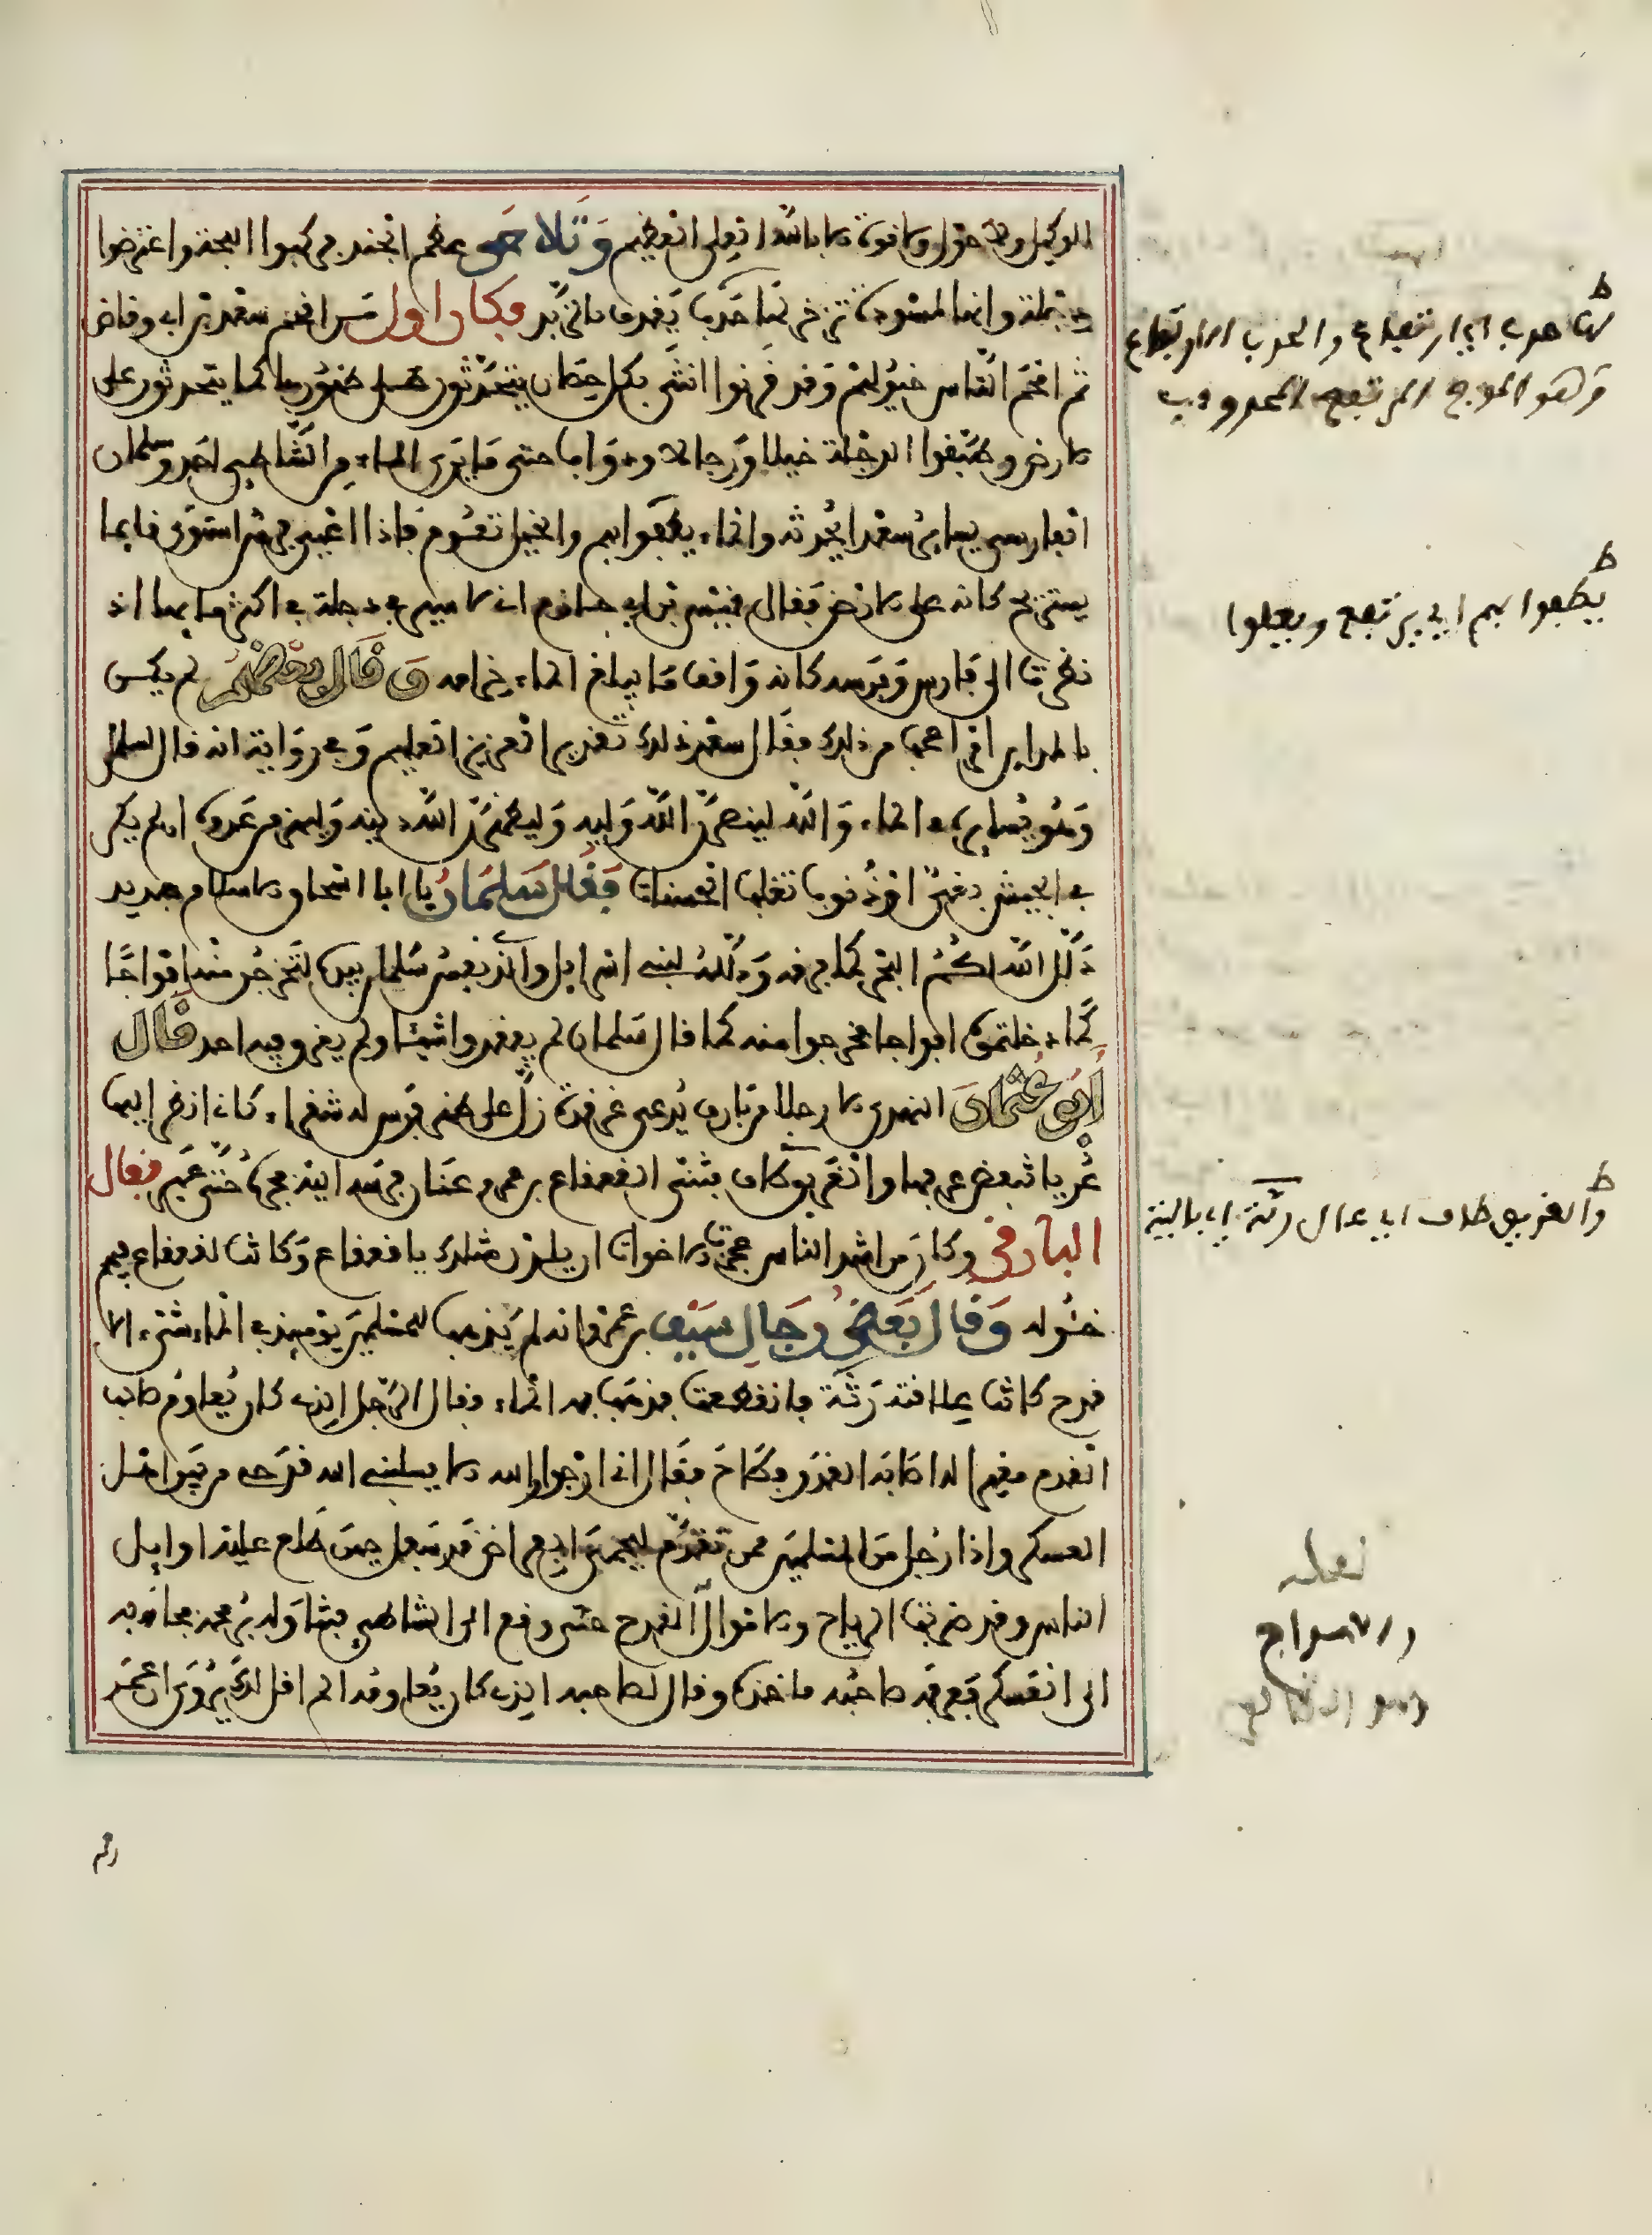 الوكيل ولا حول ولا قوة الا بالله العلي العظيم وتلاحق عظم الجند فركبوا اللجة واعترضوا
دجلة وانها لمسودة تزخر لها حدب يقذف بالزبد وكان اول من اقحم سعد بن ابي وقاص
ثم اقحم الناس خيولهم وقد قرنوا انثى بكل حصان يتحدثون على ظهورها كما يتحدثون على
الارض وطبقوا الدجلة خيلا ورجالا ودوابا حتى ما يرى الماء من الشاطئ احد وسلمان
الفارسي يساير سعدا يحدثه والماء يطفوا بهم والخيل تعوم فاذا اعيى فرس استوى قايما
يستريح كانه على الارض فقال قيس بن ابي حازم اني لاسير في دجلة في اكثر مايها اذ
نظرت الى فارس وفرسه كانه واقف ما يبلغ الماء حزامه وقال بعضهم لم يكن
بالمداين امر اعجب من ذلك فقال سعد ذلك تقدير العزيز العليم وفي رواية انه قال لسلمان
وهو يسايره في الماء والله لينصرن الله وليه وليظهرن الله دينه وليهزمن عدوه ان لم يكن
في الجيش بغي او ذنوب تغلب الحسنات فقال سلمان يا ابا اسحاق الاسلام جديد
ذلل الله لكم البحر كما فرقه وذلله لبني اسرايل والذي نفس سلمان بيده لتخرجن منه افواجا
كما دخلتموه افواجا فخرجوا منه كما قال سلمان لم يفقدوا شيئا ولم يغرق فيه احد قال
ابو عثمان النهدي الا رجلا من بارق يدعى غرقدة زل على ظهر فرس له شقراء كاني انظر اليها
عريا تنفض عرفها والغريق طاف فثنى القعقاع بن عمرو عنان فرسه اليه فجره حتى عبر فقال
البارقي وكان من اشد الناس عجزت الاخوات ان يلدن مثلك يا قعقاع وكانت للقعقاع فيهم
خئولة وقال بعض رجال سيف بن عمر وانه لم يذهب للمسلمين يومئذ في الماء شيء الا
قدح كانت علاقته رثة فانقطعت فذهب به الماء فقال الرجل الذي كان يعاوم صاحب
القدح معيرا له اصابه القدر فطاح فقال اني ارجوا والله الا يسلبني الله قدحي من بين اهل
العسكر واذا رجل من المسلمين ممن تقدم ليحمي الفراض قد سفل حتى طلع عليه اوايل
الناس وقد ضربته الرياح والامواج القدح حتى وقع الى الشاطئ فتناوله برمحه فجاء به
الى العسكر فعرفه صاحبه فاخذه وقال لصاحبه الذي كان يعاومه الم اقل لك ويروى ان عمر
ط
لها حدب اي ارتفاع والحدب الارتفاع
وهو الموج المرتفع المحدودب
ط
يطفوا بهم اي يرتفع ويعلوا
ط
والغريق طاف اي عال رثة اي بالية
لعله
والامواج